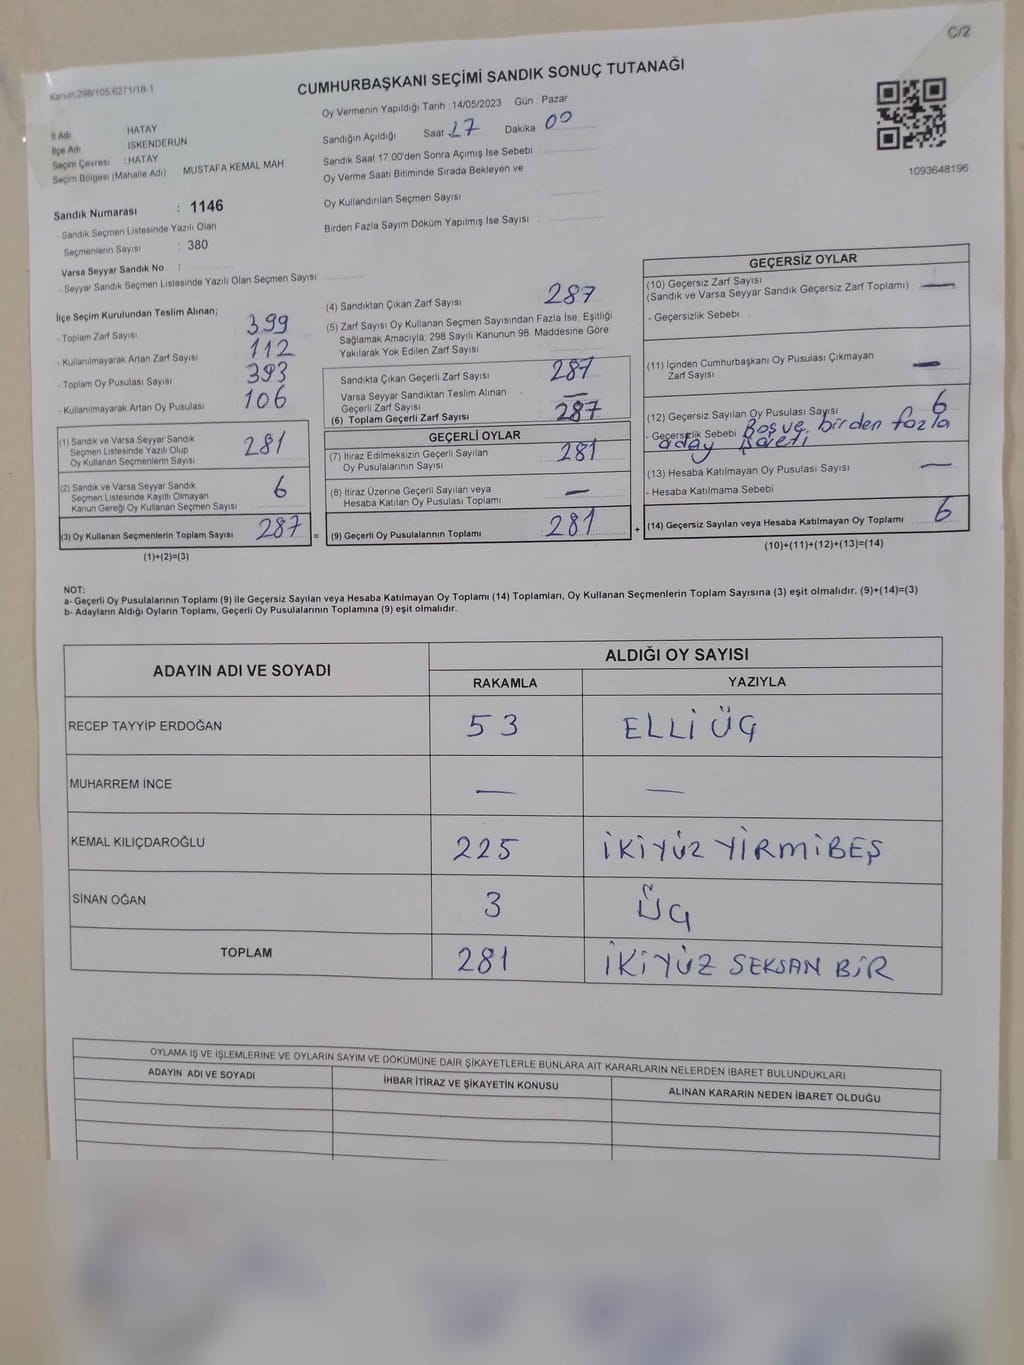 C/2
Kanun 298/105,6271/18-1
CUMHURBAŞKANI SEÇİMİ SANDIK SONUÇ TUTANAĞI
Oy Vermenin Yapıldığı Tarih : 14/05/2023 Gün : Pazar
İl Adı HATAY
İlçe Adı İSKENDERUN
Seçim Çevresi : HATAY
Seçim Bölgesi (Mahalle Adı) MUSTAFA KEMAL MAH.
Sandığın Açıldığı Saat 17 Dakika 00
Sandık Saat 17.00'den Sonra Açımış İse Sebebi
Oy Verme Saati Bitiminde Sırada Bekleyen ve
Oy Kullandırılan Seçmen Sayısı
Birden Fazla Sayım Döküm Yapılmış İse Sayısı
1093648196
Sandık Numarası : 1146
- Sandık Seçmen Listesinde Yazılı Olan
Seçmenlerin Sayısı : 380
Varsa Seyyar Sandık No :
- Seyyar Sandık Seçmen Listesinde Yazılı Olan Seçmen Sayısı:
İlçe Seçim Kurulundan Teslim Alınan;
- Toplam Zarf Sayısı 399
- Kullanılmayarak Artan Zarf Sayısı 112
- Toplam Oy Pusulası Sayısı 393
- Kullanılmayarak Artan Oy Pusulası 106
(1) Sandık ve Varsa Seyyar Sandık
Seçmen Listesinde Yazılı Olup
Oy Kullanan Seçmenlerin Sayısı 281
(2) Sandık ve Varsa Seyyar Sandık
Seçmen Listesinde Kayıtlı Olmayan
Kanun Gereği Oy Kullanan Seçmen Sayısı 6
(3) Oy Kullanan Seçmenlerin Toplam Sayısı 287 =
(1)+(2)=(3)
(4) Sandıktan Çıkan Zarf Sayısı 287
(5) Zarf Sayısı Oy Kullanan Seçmen Sayısından Fazla İse, Eşitliği
Sağlamak Amacıyla; 298 Sayılı Kanunun 98. Maddesine Göre
Yakılarak Yok Edilen Zarf Sayısı
Sandıkta Çıkan Geçerli Zarf Sayısı 287
Varsa Seyyar Sandıktan Teslim Alınan
Geçerli Zarf Sayısı —
(6) Toplam Geçerli Zarf Sayısı 287
GEÇERLİ OYLAR
(7) İtiraz Edilmeksizin Geçerli Sayılan
Oy Pusulalarının Sayısı 281
(8) İtiraz Üzerine Geçerli Sayılan veya
Hesaba Katılan Oy Pusulası Toplamı —
(9) Geçerli Oy Pusulalarının Toplamı 281 +
GEÇERSİZ OYLAR
(10) Geçersiz Zarf Sayısı
(Sandık ve Varsa Seyyar Sandık Geçersiz Zarf Toplamı) —
- Geçersizlik Sebebi
(11) İçinden Cumhurbaşkanı Oy Pusulası Çıkmayan
Zarf Sayısı —
(12) Geçersiz Sayılan Oy Pusulası Sayısı 6
- Geçersizlik Sebebi Boş ve birden fazla
aday işareti
(13) Hesaba Katılmayan Oy Pusulası Sayısı —
- Hesaba Katılmama Sebebi
(14) Geçersiz Sayılan veya Hesaba Katılmayan Oy Toplamı 6
(10)+(11)+(12)+(13)=(14)
NOT:
a- Geçerli Oy Pusulalarının Toplamı (9) ile Geçersiz Sayılan veya Hesaba Katılmayan Oy Toplamı (14) Toplamları, Oy Kullanan Seçmenlerin Toplam Sayısına (3) eşit olmalıdır. (9)+(14)=(3)
b- Adayların Aldığı Oyların Toplamı, Geçerli Oy Pusulalarının Toplamına (9) eşit olmalıdır.
ADAYIN ADI VE SOYADI ALDIĞI OY SAYISI
RAKAMLA YAZIYLA
RECEP TAYYİP ERDOĞAN 53 ELLİ ÜÇ
MUHARREM İNCE — —
KEMAL KILIÇDAROĞLU 225 İKİYÜZ YİRMİBEŞ
SİNAN OĞAN 3 ÜÇ
TOPLAM 281 İKİYÜZ SEKSAN BİR
OYLAMA İŞ VE İŞLEMLERİNE VE OYLARIN SAYIM VE DÖKÜMÜNE DAİR ŞİKAYETLERLE BUNLARA AİT KARARLARIN NELERDEN İBARET BULUNDUKLARI
ADAYIN ADI VE SOYADI İHBAR İTİRAZ VE ŞİKAYETİN KONUSU ALINAN KARARIN NEDEN İBARET OLDUĞU